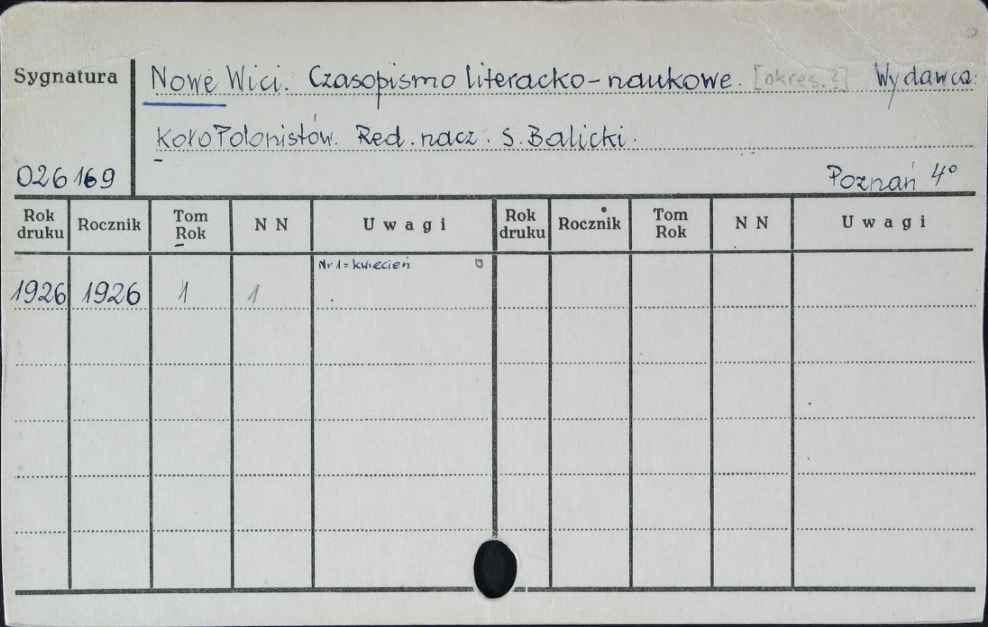 Sygnatura
Nowe Wici. Czasopismo literacko-naukowe. [okres.?] Wydawca:
Koło Polonistów. Red. nacz. S. Balicki.
026169
Poznań 4°
Rok druku Rocznik Tom Rok N N Uwagi Rok druku Rocznik Tom Rok N N Uwagi
Nr 1 = kwiecień
1926 1926 1 1